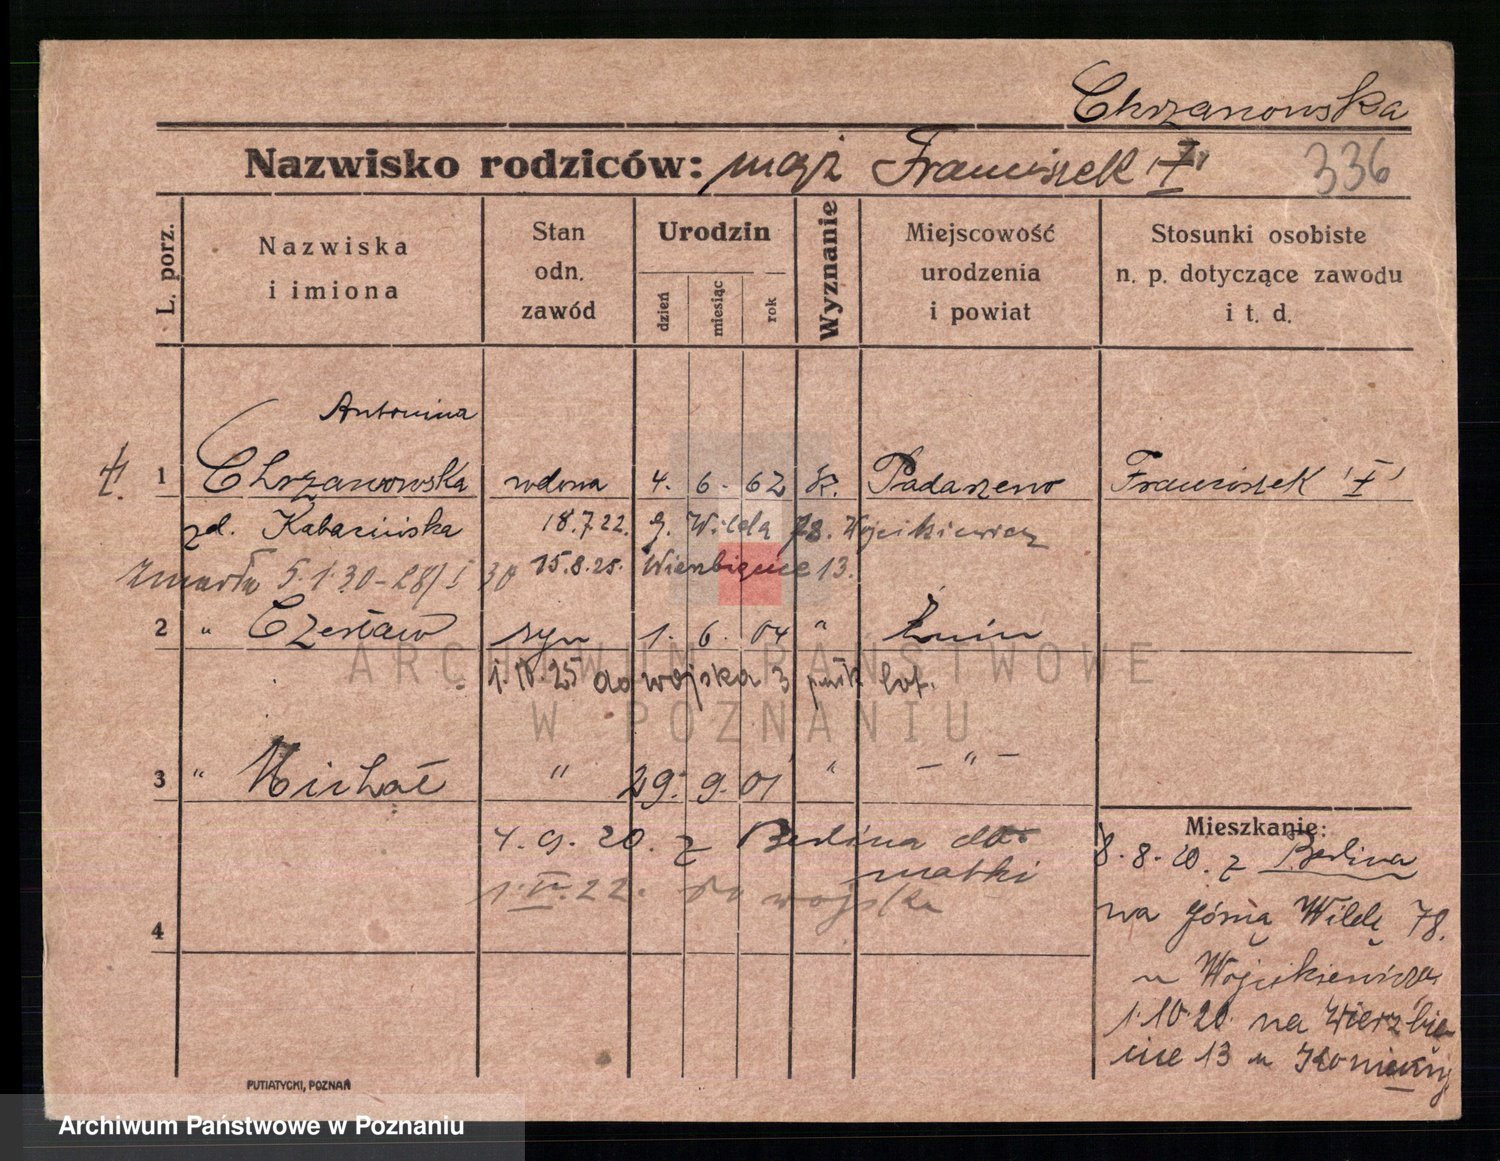 Chrzanowska
Nazwisko rodziców: mąż Franciszek "I" 336
L. porz.
Nazwiska i imiona
Stan odn. zawód
Urodzin
dzień
miesiąc
rok
Wyznanie
Miejscowość urodzenia i powiat
Stosunki osobiste n. p. dotyczące zawodu i t. d.
Antonina
1 Chrzanowska wdowa 4. 6. 62 K. Padarzewo Franciszek "I"
zd. Kabacińska 18.7.22. G. Wilda 78. Wojcikiewicz
zmarła 5.1.30 - 28/I 30 15.8.25. Wierzbięcice 13.
2 " Czesław syn 1. 6. 04 " Żnin
1.IV.25 do wojska 3 pułk lot.
3 " Michał " 29. 9. 01 " — " —
4. 9. 20. z Berlina do matki
1. 22. do wojska
4
Mieszkanie:
8. 8. 20. z Berlina
na Górną Wildę 78.
u Wojcikiewicza
1.10.20. na Wierzbię-
cice 13 u
PUTIATYCKI, POZNAŃ
ARCHIWUM PAŃSTWOWE
W POZNANIU
Archiwum Państwowe w Poznaniu